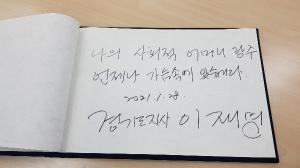 나의 사회적 어머니 광주
언제나 가슴속에 있습니다.
2021. 1. 28.
경기도지사 이재명